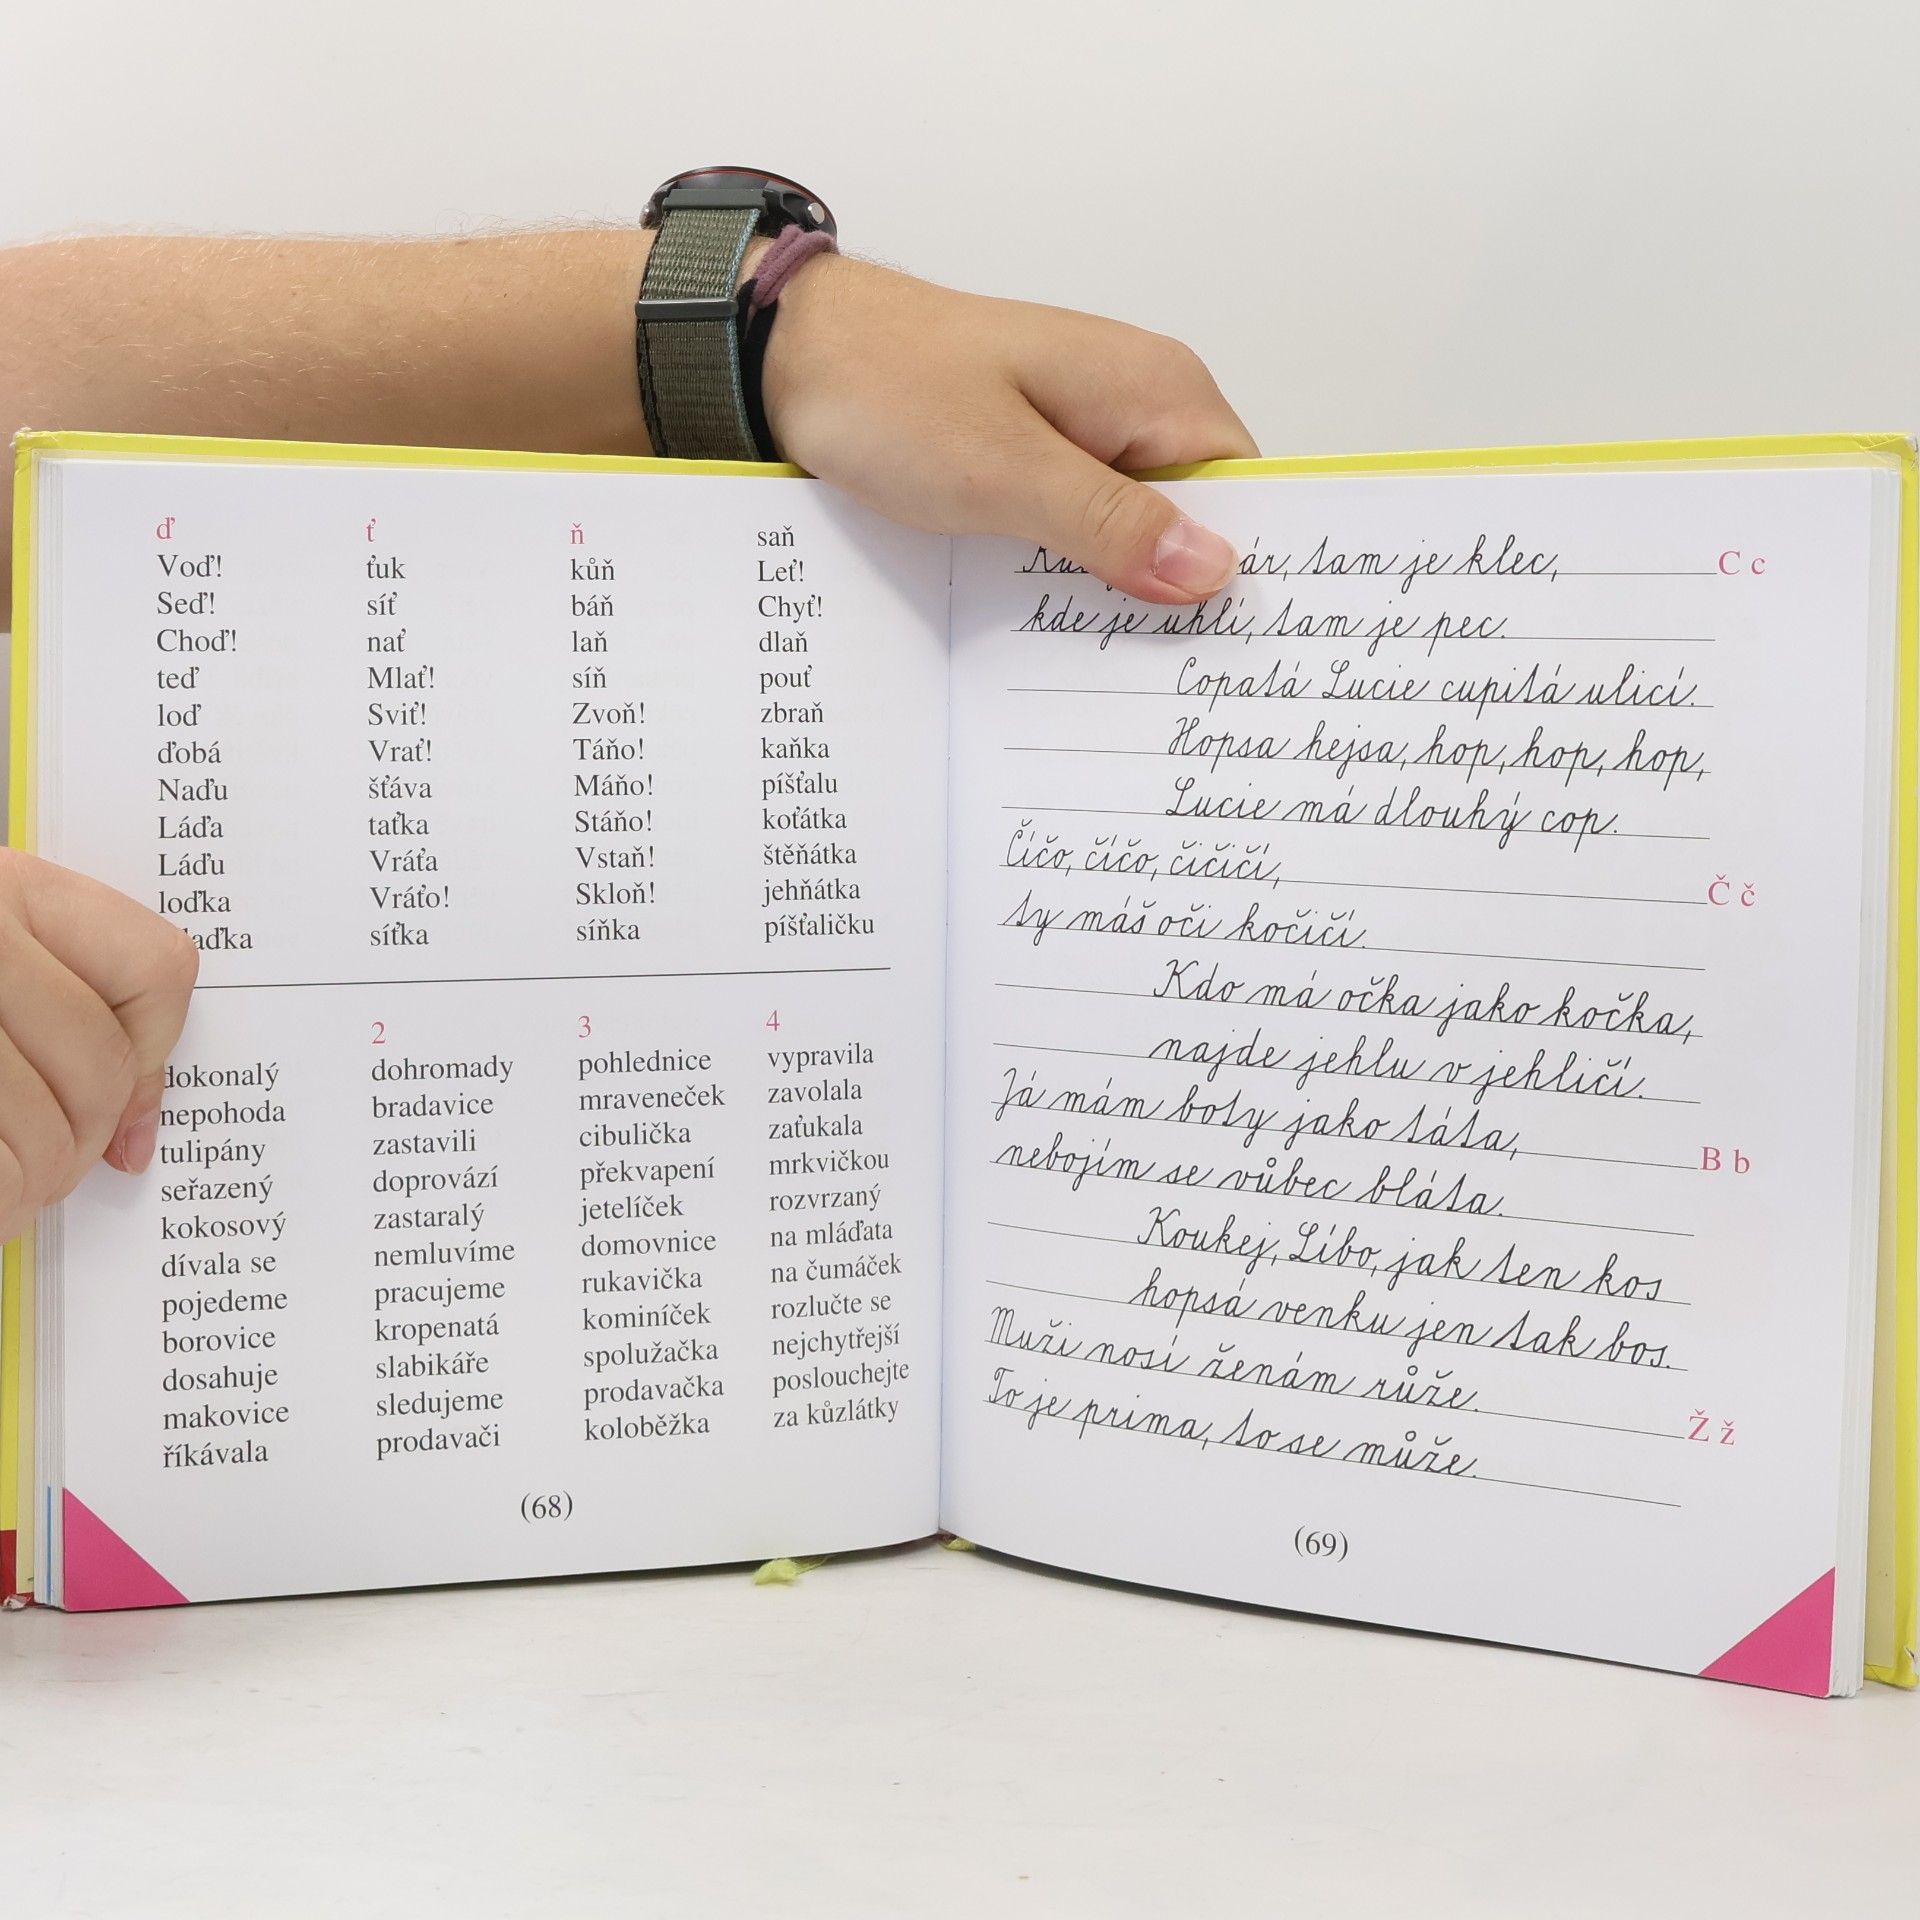 ď
Voď!
Seď!
Choď!
teď
loď
ďobá
Naďu
Láďa
Láďu
loďka
ť
ťuk
síť
nať
Mlať!
Sviť!
Vrať!
šťáva
taťka
Vráťa
Vráťo!
síťka
ň
kůň
báň
laň
síň
Zvoň!
Táňo!
Máňo!
Stáňo!
Vstaň!
Skloň!
síňka
saň
Leť!
Chyť!
dlaň
pouť
zbraň
kaňka
píšťalu
koťátka
štěňátka
jehňátka
píšťaličku
dokonalý
nepohoda
tulipány
seřazený
kokosový
dívala se
pojedeme
borovice
dosahuje
makovice
říkávala
2
dohromady
bradavice
zastavili
doprovází
zastaralý
nemluvíme
pracujeme
kropenatá
slabikáře
sledujeme
prodavači
3
pohlednice
mraveneček
cibulička
překvapení
jetelíček
domovnice
rukavička
kominíček
spolužačka
prodavačka
koloběžka
4
vypravila
zavolala
zaťukala
mrkvičkou
rozvrzaný
na mláďata
na čumáček
rozlučte se
nejchytřejší
poslouchejte
za kůzlátky
(68)
tam je klec, C c
kde je uhlí, tam je pec.
Copatá Lucie cupitá ulicí.
Hopsa hejsa, hop, hop, hop,
Lucie má dlouhý cop.
Číčo, číčo, čičičí, Č č
ty máš oči kočičí.
Kdo má očka jako kočka,
najde jehlu v jehličí.
Já mám boty jako táta, B b
nebojím se vůbec bláta.
Koukej, Líbo, jak ten kos
hopsá venku jen tak bos.
Muži nosí ženám růže. Ž ž
To je prima, to se může.
(69)